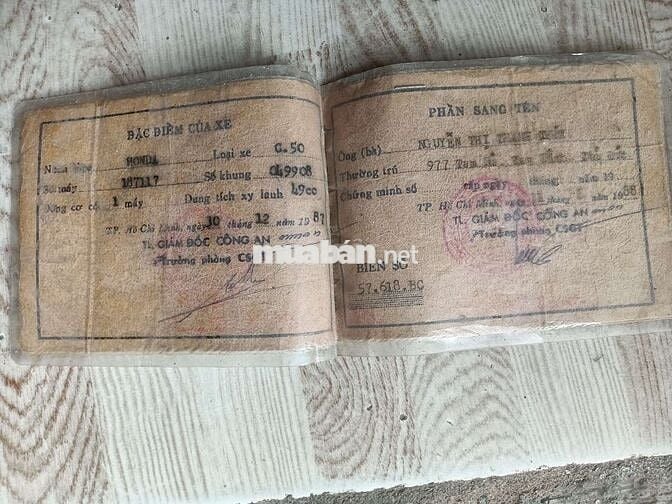 ĐẶC ĐIỂM CỦA XE
HONDA Loại xe C.50
Số máy 187117 Số khung 049908
Động cơ có 1 máy Dung tích xy lanh 49cc
TP. Hồ Chí Minh, ngày 10 tháng 12 năm 1987
TL. GIÁM ĐỐC CÔNG AN
Trưởng phòng CSGT
PHẦN SANG TÊN
Ông (bà) NGUYỄN THỊ
Thường trú 977
Chứng minh số cấp ngày tháng 19
TP. Hồ Chí Minh, ngày năm 1988
TL. GIÁM ĐỐC CÔNG AN
Trưởng phòng CSGT
BIỂN SỐ
57.618.BC
muaban.net